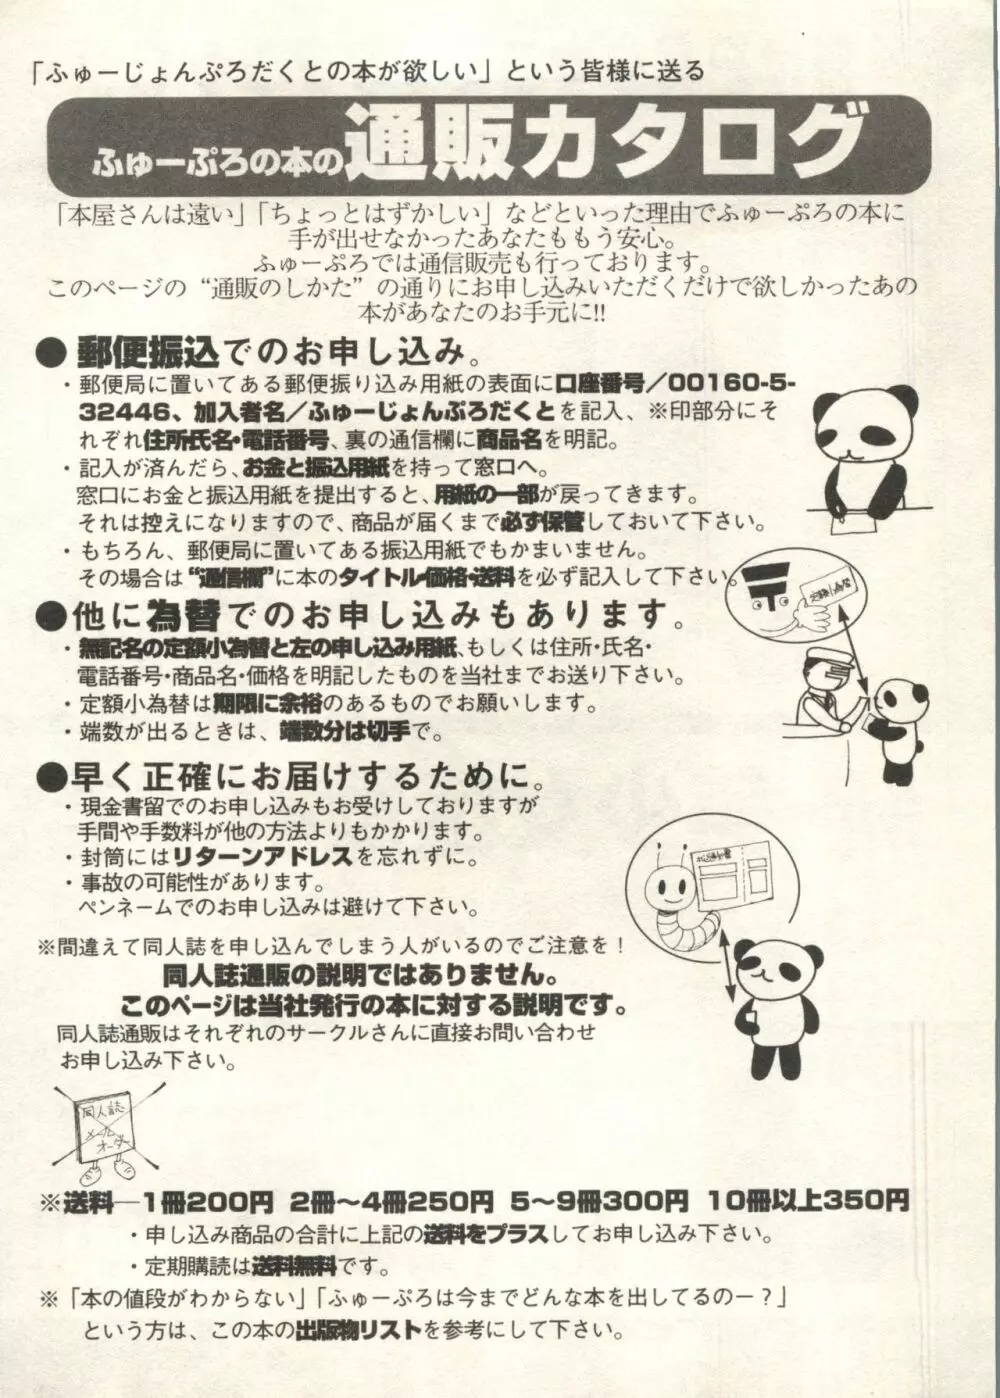 「ふゅーじょんぷろだくとの本が欲しい」という皆様に送る
ふゅーぷろの本の通販カタログ
「本屋さんは遠い」「ちょっとはずかしい」などといった理由でふゅーぷろの本に
手が出せなかったあなたももう安心。
ふゅーぷろでは通信販売も行っております。
このページの“通販のしかた”の通りにお申し込みいただくだけで欲しかったあの
本があなたのお手元に!!
●郵便振込でのお申し込み。
・郵便局に置いてある郵便振り込み用紙の表面に口座番号／00160-5-
32446、加入者名／ふゅーじょんぷろだくとを記入、※印部分にそ
れぞれ住所氏名・電話番号、裏の通信欄に商品名を明記。
・記入が済んだら、お金と振込用紙を持って窓口へ。
窓口にお金と振込用紙を提出すると、用紙の一部が戻ってきます。
それは控えになりますので、商品が届くまで必ず保管しておいて下さい。
・もちろん、郵便局に置いてある振込用紙でもかまいません。
その場合は“通信欄”に本のタイトル・価格・送料を必ず記入して下さい。
●他に為替でのお申し込みもあります。
・無記名の定額小為替と左の申し込み用紙、もしくは住所・氏名・
電話番号・商品名・価格を明記したものを当社までお送り下さい。
・定額小為替は期限に余裕のあるものでお願いします。
・端数が出るときは、端数分は切手で。
●早く正確にお届けするために。
・現金書留でのお申し込みもお受けしておりますが
手間や手数料が他の方法よりもかかります。
・封筒にはリターンアドレスを忘れずに。
・事故の可能性があります。
ペンネームでのお申し込みは避けて下さい。
※間違えて同人誌を申し込んでしまう人がいるのでご注意を！
同人誌通販の説明ではありません。
このページは当社発行の本に対する説明です。
同人誌通販はそれぞれのサークルさんに直接お問い合わせ
お申し込み下さい。
同人誌
メール
オーダー
※送料―1冊200円 2冊～4冊250円 5～9冊300円 10冊以上350円
・申し込み商品の合計に上記の送料をプラスしてお申し込み下さい。
・定期購読は送料無料です。
※「本の値段がわからない」「ふゅーぷろは今までどんな本を出してるのー？」
という方は、この本の出版物リストを参考にして下さい。